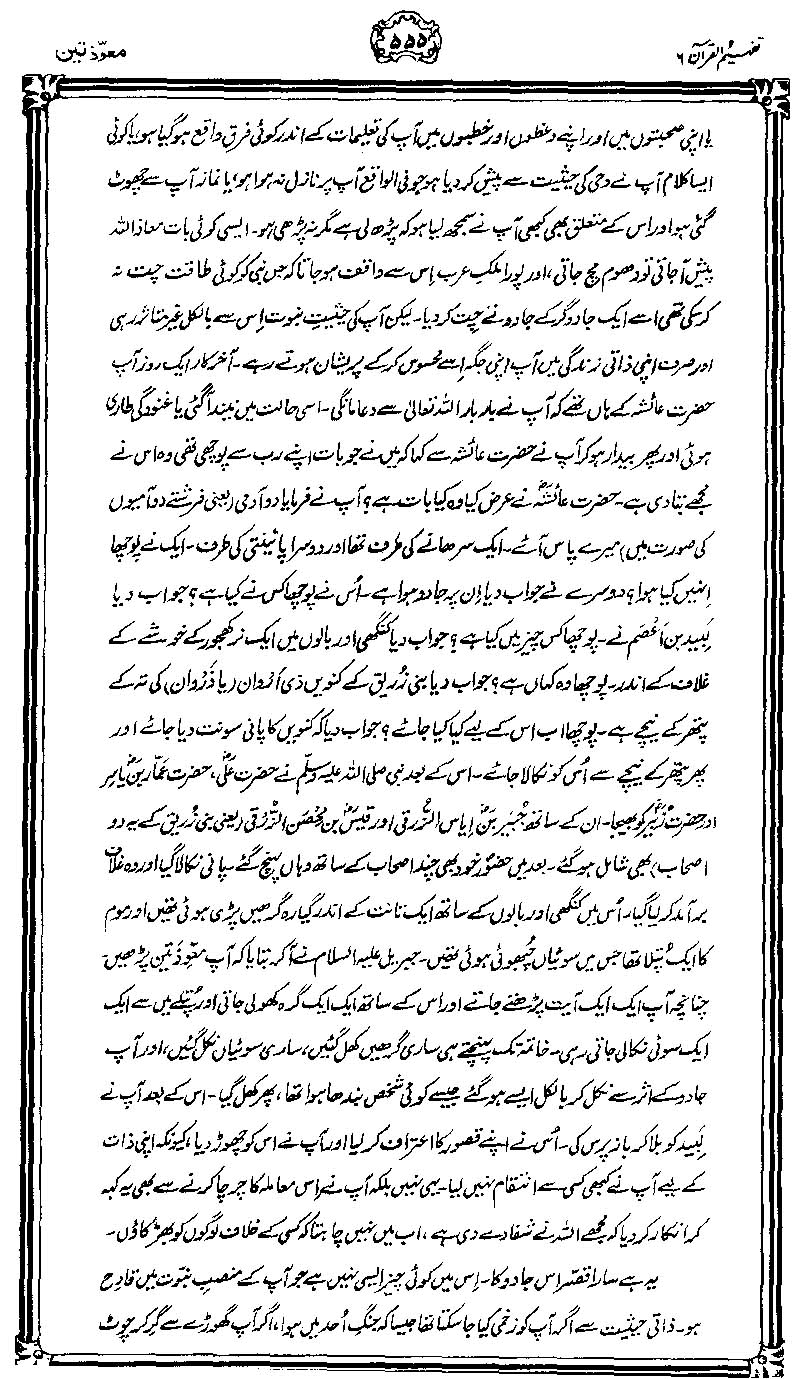 تفہیم القرآن ۶
۵۵۵
معوّذتین
یا اپنی صحبتوں میں اور اپنے وعظوں اور خطبوں میں آپ کی تعلیمات کے اندر کوئی فرق واقع ہو گیا ہو، یا کوئی
ایسا کلام آپ نے وحی کی حیثیت سے پیش کر دیا ہو جو فی الواقع آپ پر نازل نہ ہوا ہو، یا نماز آپ سے چھوٹ
گئی ہو اور اس کے متعلق بھی کبھی آپ نے سمجھ لیا ہو کہ پڑھ لی ہے مگر نہ پڑھی ہو۔ ایسی کوئی بات معاذ اللہ
پیش آ جاتی تو دھوم مچ جاتی، اور پورا ملک عرب اِس سے واقف ہو جاتا کہ جس نبی کو کوئی طاقت چت نہ
کر سکی تھی اسے ایک جادوگر کے جادو نے چت کر دیا۔ لیکن آپ کی حیثیتِ نبوت اِس سے بالکل غیر متاثر رہی
اور صرف اپنی ذاتی زندگی میں آپ اپنی جگہ اِسے محسوس کر کے پریشان ہوتے رہے۔ آخر کار ایک روز آپ
حضرت عائشہ کے ہاں تھے کہ آپ نے بار بار اللہ تعالیٰ سے دعا مانگی۔ اسی حالت میں نیند آگئی یا غنودگی طاری
ہوئی اور پھر بیدار ہو کر آپ نے حضرت عائشہ سے کہا کہ میں نے جو بات اپنے رب سے پوچھی تھی وہ اس نے
مجھے بتا دی ہے۔ حضرت عائشہؓ نے عرض کیا وہ کیا بات ہے؟ آپ نے فرمایا دو آدمی (یعنی فرشتے دو آدمیوں
کی صورت میں) میرے پاس آئے۔ ایک سرھانے کی طرف تھا اور دوسرا پائینتی کی طرف۔ ایک نے پوچھا
اِنہیں کیا ہوا؟ دوسرے نے جواب دیا اِن پر جادو ہوا ہے۔ اُس نے پوچھا کس نے کیا ہے؟ جواب دیا
لَبید بن اَعْصَم نے۔ پوچھا کس چیز میں کیا ہے؟ جواب دیا کنگھی اور بالوں میں ایک نر کھجور کے خوشے کے
غلاف کے اندر۔ پوچھا وہ کہاں ہے؟ جواب دیا بنی زُریق کے کنویں ذی اَرْوان (یا ذَرْوان) کی تہ کے
پتھر کے نیچے ہے۔ پوچھا اب اس کے لیے کیا کیا جائے؟ جواب دیا کہ کنویں کا پانی سونت دیا جائے اور
پھر پتھر کے نیچے سے اُس کو نکالا جائے۔ اس کے بعد نبی صلی اللہ علیہ وسلم نے حضرت علیؓ، حضرت عمّارؓ بن یاسر
اور حضرت زُبیرؓ کو بھیجا۔ ان کے ساتھ جُبیرؓ بن اِیاس الزُّرَقی اور قیسؓ بن مِحْصَن الزُّرَقی (یعنی بنی زُریق کے یہ دو
اصحاب) بھی شامل ہو گئے۔ بعد میں حضورؐ خود بھی چند اصحاب کے ساتھ وہاں پہنچ گئے۔ پانی نکالا گیا اور وہ غلاف
برآمد کر لیا گیا۔ اُس میں کنگھی اور بالوں کے ساتھ ایک تانت کے اندر گیارہ گرھیں پڑی ہوئی تھیں اور موم
کا ایک پُتلا تھا جس میں سوئیاں چُبھوئی ہوئی تھیں۔ جبریل علیہ السلام نے آکر بتایا کہ آپ معوّذتین پڑھیں۔
چنانچہ آپ ایک ایک آیت پڑھتے جاتے اور اس کے ساتھ ایک ایک گرہ کھولی جاتی اور پُتلے میں سے ایک
ایک سوئی نکالی جاتی رہی۔ خاتمہ تک پہنچتے ہی ساری گرھیں کھل گئیں، ساری سوئیاں نکل گئیں، اور آپ
جادو کے اثر سے نکل کر بالکل ایسے ہو گئے جیسے کوئی شخص بندھا ہوا تھا، پھر کھل گیا۔ اس کے بعد آپ نے
لَبید کو بلا کر باز پرس کی۔ اُس نے اپنے قصور کا اعتراف کر لیا اور آپ نے اس کو چھوڑ دیا، کیونکہ اپنی ذات
کے لیے آپ نے کبھی کسی سے انتقام نہیں لیا۔ یہی نہیں بلکہ آپ نے اس معاملہ کا چرچا کرنے سے بھی یہ کہہ
کر انکار کر دیا کہ مجھے اللہ نے شفا دے دی ہے، اب میں نہیں چاہتا کہ کسی کے خلاف لوگوں کو بھڑکاؤں۔
یہ ہے سارا قصّہ اس جادو کا۔ اِس میں کوئی چیز ایسی نہیں ہے جو آپ کے منصبِ نبوّت میں قادح
ہو۔ ذاتی حیثیت سے اگر آپ کو زخمی کیا جا سکتا تھا جیسا کہ جنگِ اُحد میں ہوا، اگر آپ گھوڑے سے گر کر چوٹ